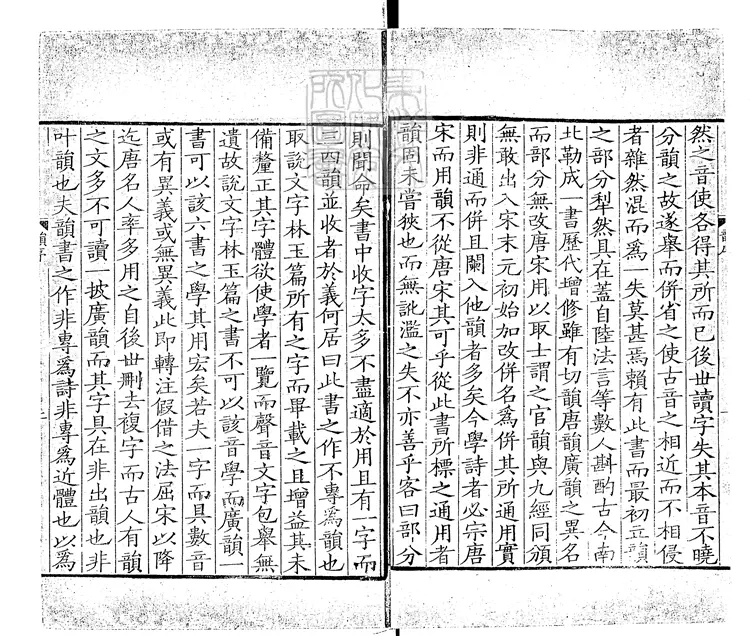 然之音使各得其所而已後世讀字失其本音不曉
分韻之故遂舉而併省之使古音之相近而不相侵
者雜然混而爲一失莫甚焉賴有此書而最初立韻
之部分犁然具在蓋自陸法言等數人斟酌古今南
北勒成一書歷代增修雖有切韻唐韻廣韻之異名
而部分無改唐宋用以取士謂之官韻與九經同頒
無敢出入宋末元初始加改併名爲併其所通用實
則非通而併且闌入他韻者多矣今學詩者必宗唐
宋而用韻不從唐宋其可乎從此書所標之通用者
韻固未嘗狹也而無訛濫之失不亦善乎客曰部分
則聞命矣書中收字太多不盡適於用且有一字而
三四韻並收者於義何居曰此書之作不專爲韻也
取說文字林玉篇所有之字而畢載之且增益其未
備釐正其字體欲使學者一覽而聲音文字包舉無
遺故說文字林玉篇之書不可以該音學而廣韻一
書可以該六書之學其用宏矣若夫一字而具數音
或有異義或無異義此即轉注假借之法屈宋以降
迄唐名人率多用之自後世刪去複字而古人有韻
之文多不可讀一披廣韻而其字具在非出韻也非
叶韻也夫韻書之作非專爲詩非專爲近體也以爲
韻序